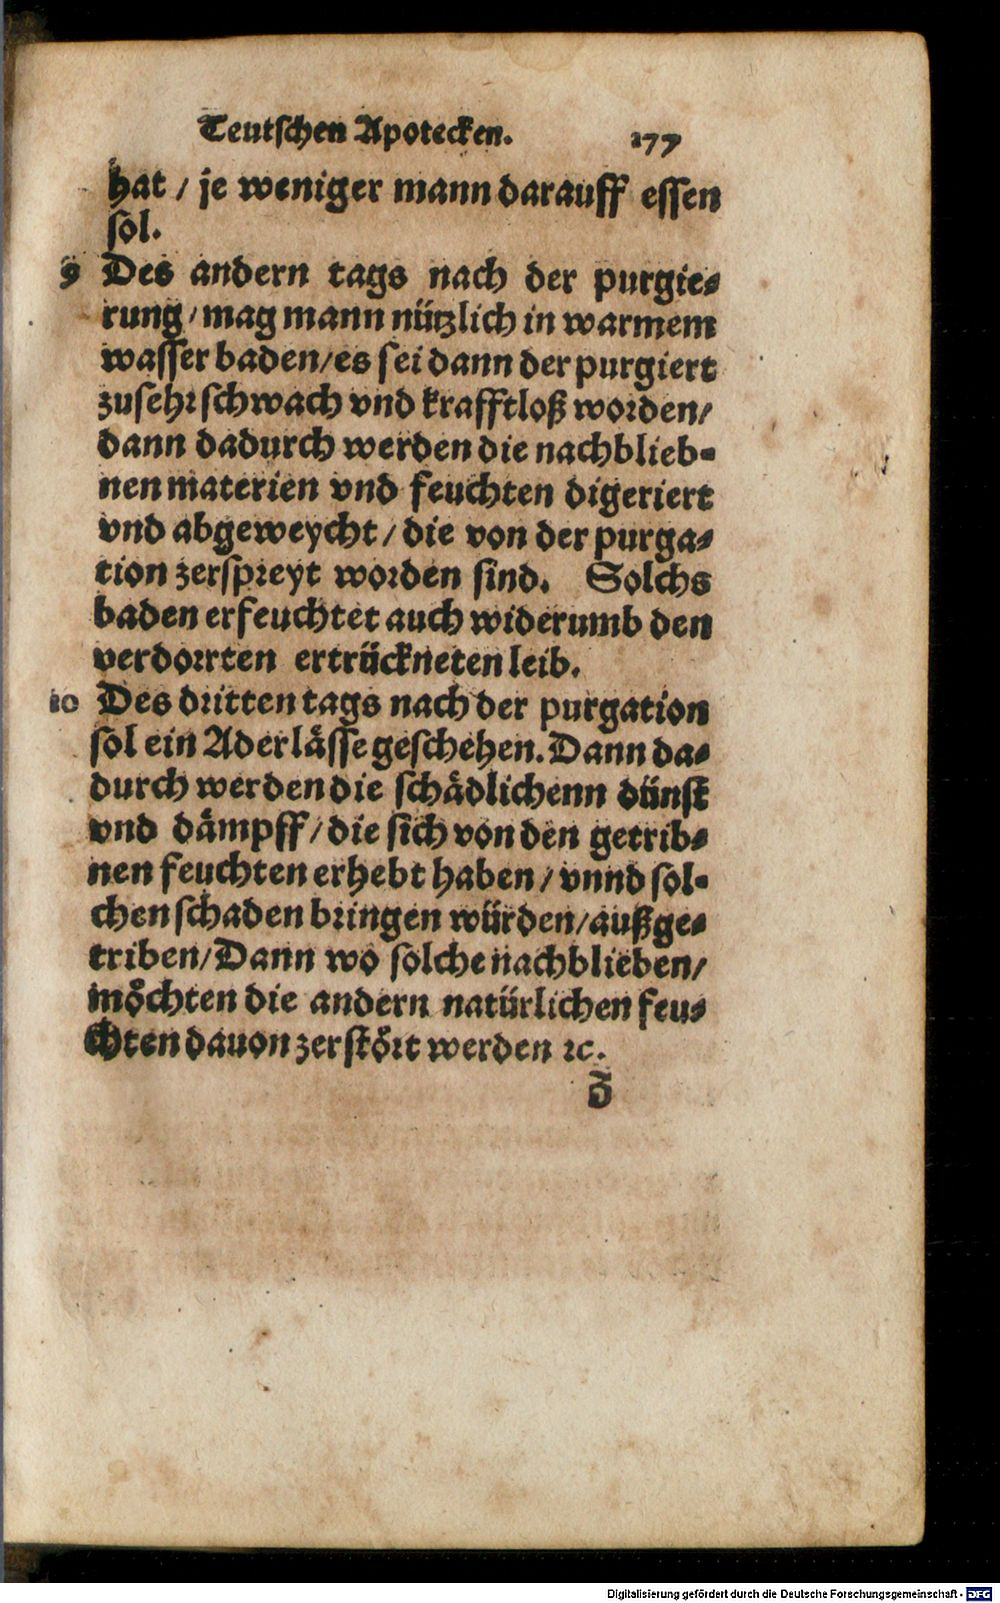 Teutschen Apotecken. 177
hat / je weniger mann darauff essen
sol.
9 Des andern tags nach der purgie-
rung / mag mann nützlich in warmem
wasser baden / es sei dann der purgiert
zusehr schwach vnd krafftloß worden /
dann dadurch werden die nachblieb-
nen materien vnd feuchten digeriert
vnd abgeweycht / die von der purga-
tion zerspreyt worden sind. Solchs
baden erfeuchtet auch widerumb den
verdorrten ertrückneten leib.
10 Des dritten tags nach der purgation
sol ein Aderlässe geschehen. Dann da-
durch werden die schädlichenn dünst
vnd dämpff / die sich von den getrib-
nen feuchten erhebt haben / vnnd sol-
chen schaden bringen würden / außge-
triben / Dann wo solche nachblieben /
möchten die andern natürlichen feu-
chten dauon zerstört werden ꝛc.
Z
Digitalisierung gefördert durch die Deutsche Forschungsgemeinschaft - DFG